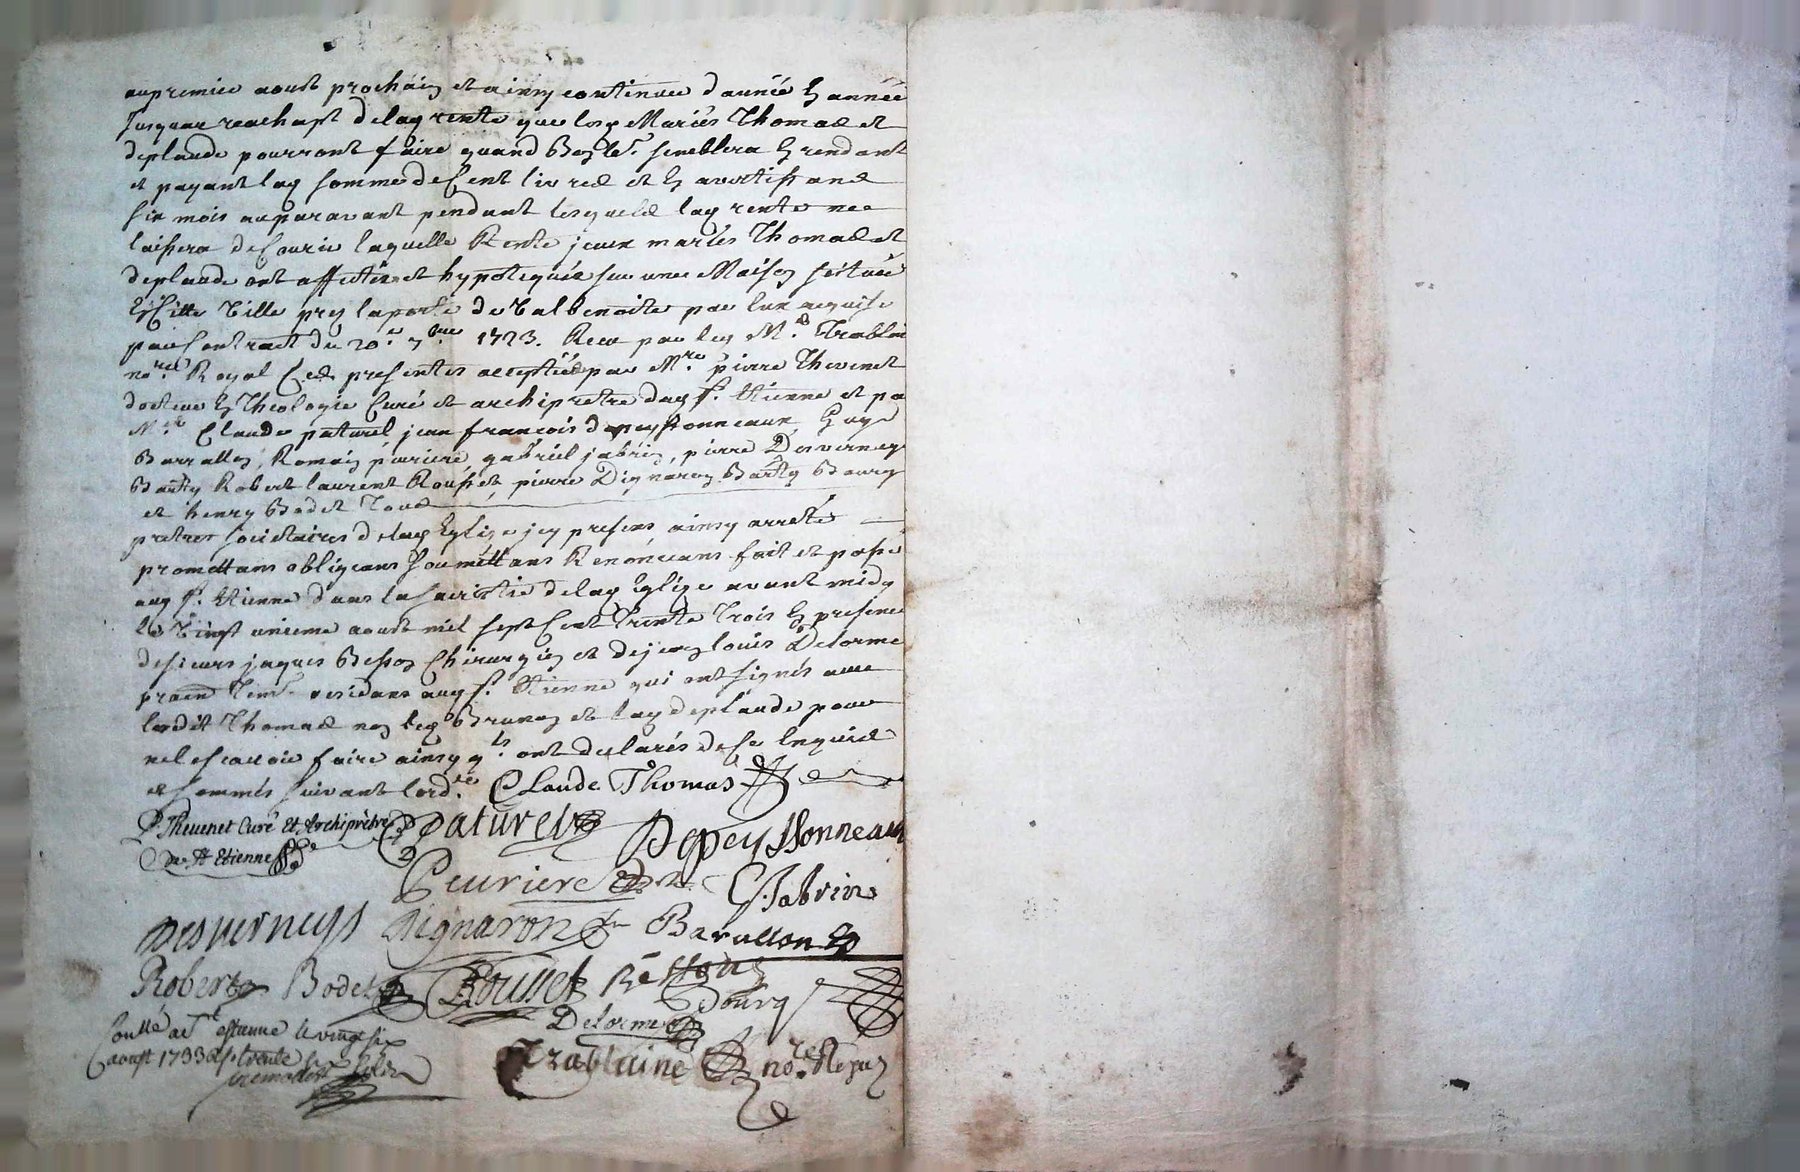 aupremier aoust prochain et ainsy continuer d'année En année
Jusquau reachapt delad rente que lesd Mariés Thomas et
deplaude pourront faire quand Bon leur semblera En rendant
et payant lad somme de Cent livres et En avertissant
six mois auparavant pendant lesquels lad rente ne
laissera de Courir laquelle Rente iceux mariés Thomas et
deplaude ont affectée et hypotequée sur une Maison scituée
En Cette Ville prez laporte de Valbenoite par Eux acquise
par Contract du 20e 7bre 1723. Receu par led Me Trablaine
nore Royal Ces presentes acceptées par Mre pierre Thevenet
docteur En Theologie Curé et archiprêtre dud St. Etienne et par
Mre Claude paturel jean françois depeyssonneaux Guy
Barrallon, Romain peuriere gabriel jabrin, pierre Desverneys
Barthy Robert laurent Rousset, pierre Dignaron Barthy Bourg
et henry Bodet Tous
pretres societaires delad Eglize icy presens ainsy arresté
promettans obligeans Soumettans Renonceans fait et passé
aud St. Etienne dans la sacristie delad Eglize avant midy
Le Vingt unieme aoust mil sept Cent Trente Trois En presence
desieurs jaques Besson Chirurgien et de jean louis Delorme
residans aud St. Etienne qui ont signés avec
ledit Thomas non led Brunon et lad deplaude pour
ne le scavoir faire ainsy qls. ont declarés de ce Enquis
et sommés suivant lord.ce Claude Thomas
P Thevenet Curé Et Archiprêtre Paturel
de St Etienne Depeyssonneaux
Peuriere G. Jabrin
Desverneys Dignaron Barallon
Robert Bodet Rousset Besson
Bourg
Delorme
Conllé a St estienne le vingt six
aoust 1733 Trablaine nore Royal